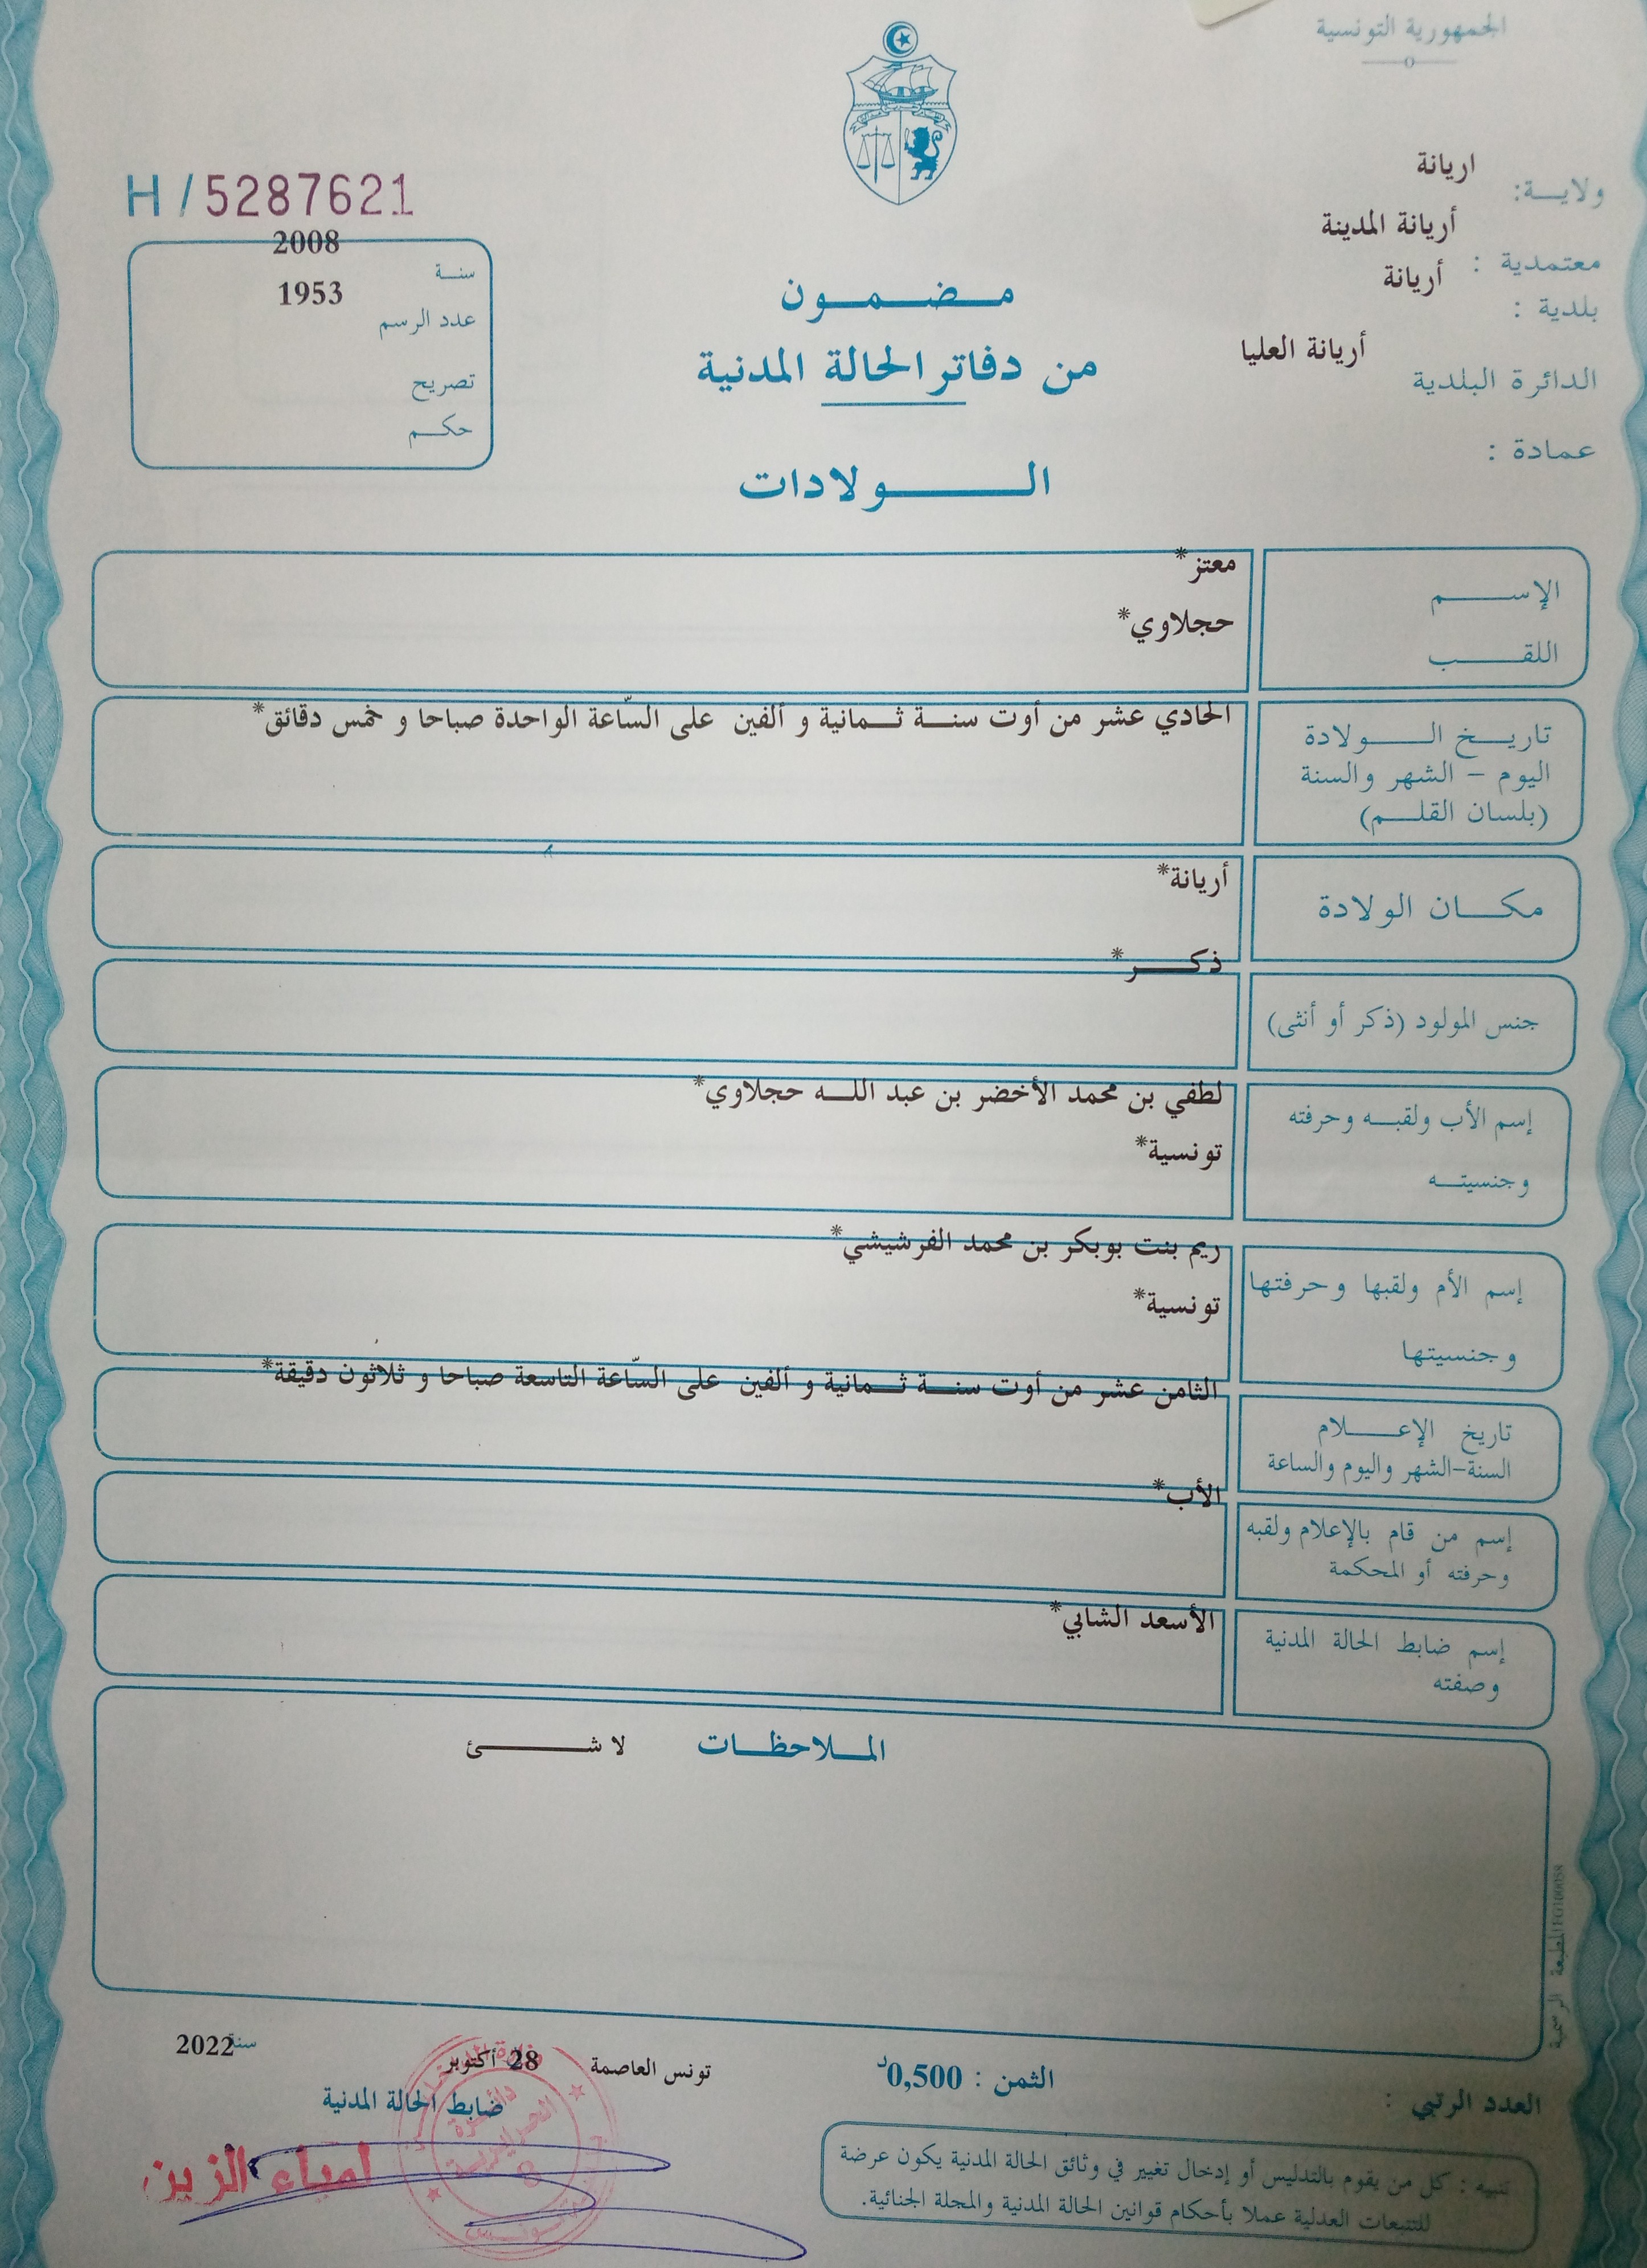 الجمهورية التونسية
ولايـــة: اريانة
معتمدية : أريانة المدينة
بلدية : أريانة
الدائرة البلدية أريانة العليا
عمادة :
H / 5287621
سنـــة 2008
عدد الرسم 1953
تصريح
حكـــم
مـــضـــمـــون
من دفاتر الحالة المدنية
الـــــولادات
الإســـــم معتز*
اللقـــــب حجلاوي*
تاريـــخ الـــــولادة
اليوم – الشهر والسنة
(بلسان القلـــم)
الحادي عشر من أوت سنـــة ثـــمانية و ألفين على السّاعة الواحدة صباحا و خمس دقائق*
مكـــان الولادة أريانة*
جنس المولود (ذكر أو أنثى) ذكـــر*
إسم الأب ولقبـــه وحرفته لطفي بن محمد الأخضر بن عبد اللـــه حجلاوي*
وجنسيتـــه تونسية*
إسم الأم ولقبها وحرفتها ريم بنت بوبكر بن محمد الفرشيشي*
وجنسيتها تونسية*
تاريخ الإعـــلام
السنة–الشهر واليوم والساعة
الثامن عشر من أوت سنـــة ثـــمانية و ألفين على السّاعة التاسعة صباحا و ثلاثون دقيقة*
إسم من قام بالإعلام ولقبه
وحرفته أو المحكمة
الأب*
إسم ضابط الحالة المدنية
وصفته
الأسعد الشابي*
المـــلاحظـــات لا شـــــئ
المطبعة الرسمية
العدد الرتبي :
الثمن : 0,500د
تونس العاصمة 28 أكتوبر سنة 2022
ضابط الحالة المدنية
لمياء الزين
دائرة
تونس
تنبيه : كل من يقوم بالتدليس أو إدخال تغيير في وثائق الحالة المدنية يكون عرضة
للتتبعات العدلية عملا بأحكام قوانين الحالة المدنية والمجلة الجنائية.